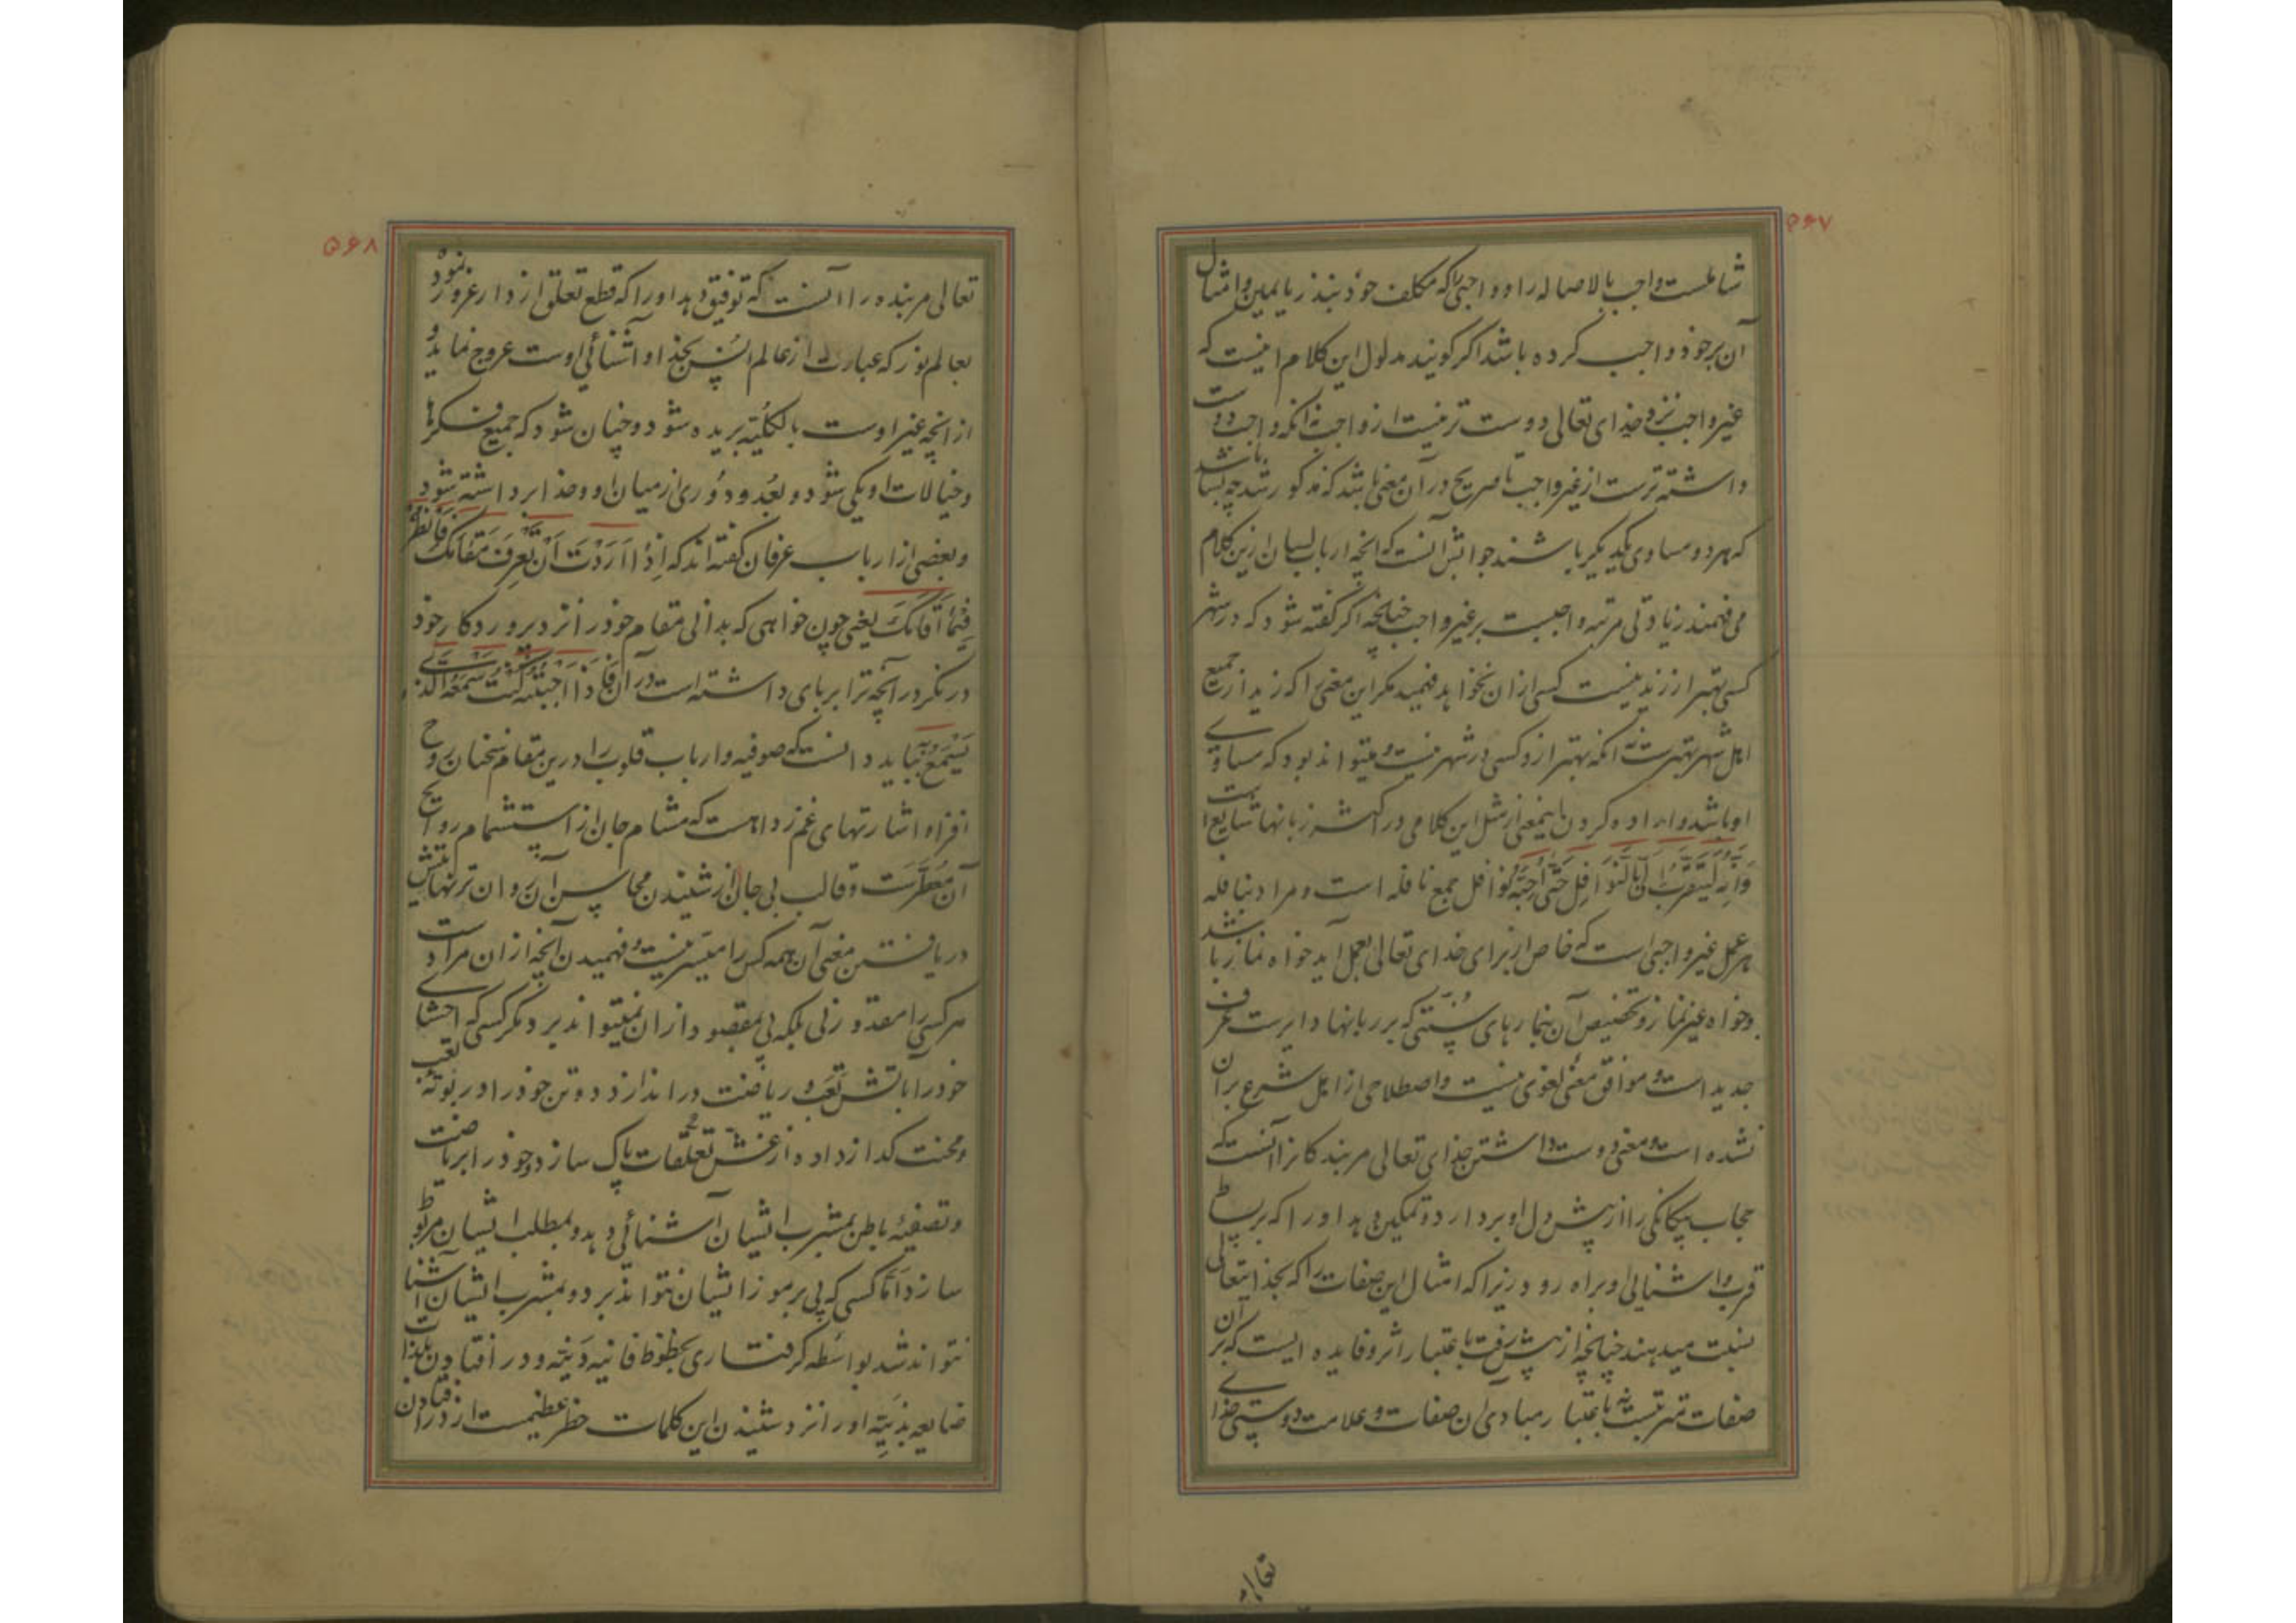 ۵۶۷
شاملست واجب بالاصاله را و واجبی را که مکلف خود بنذر یا یمین و امثال
آن بر خود واجب کرده باشد اگر کویند مدلول این کلام اینست که
غیر واجب نزد خدای تعالی دوست تر نیست از واجب نه آنکه واجب دوست
داشته ترست از غیر واجب تا صریح در آن معنی باشد که مذکور شد چه بسا باشد
که هر دو مساوی یکدیکر باشند جوابش آنست که آنچه ارباب لسان ازین کلام
می فهمند زیادتی مرتبه واجبست بر غیر واجب چنانچه اکر کفته شود که در شهر
کسی بهتر از زید نیست کسی از آن نخواهد فهمید مکر این معنی را که زید از جمیع
اهل شهر بهترست نه آنکه بهتر ازو کسی در شهر نیست و میتواند بود که مساوی
او باشد و اراده کردن اینمعنی از مثل این کلامی در اکثر زبانها شایع است
وَاِنَّهُ لَیَتَقَرَّبُ اِلَیَّ بِالنَّوَافِلِ حَتّیٰ اُحِبَّهُ نوافل جمع نافله است و مراد بنافله
هر عمل غیر واجبی است که خاص از برای خدای تعالی بعمل آید خواه نماز باشد
وخواه غیر نماز و تخصیص آن بنمازهای سُنّتی که بر زبانها دایرست عرف
جدید است و موافق معنی لغوی نیست و اصطلاحی از اهل شرع بر آن
نشده است و معنی دوست داشتن خدای تعالی مر بندکانرا آنست که
حجاب بیکانکی را از پیش دل او بردارد و تمکین دهد او را که بر بساط
قرب و آشنائی او براه رود زیرا که امثال این صفات را که بخدایتعالی
نسبت میدهند چنانچه از پیش رفت باعتبار اثر و فایده ایست که بر آن
صفات مترتبست نه باعتبار مبادی آن صفات و علامت دوستی خدای
تعالی
۵۶۸
تعالی مر بنده را آنست که توفیق دهد او را که قطع تعلق از دار غرور نموده
بعالم نور که عبارت از عالم انس بخدا و آشنائی اوست عروج نماید و
از آنچه غیر اوست بالکلیّه بریده شود و چنان شود که جمیع فکرها
و خیالات او یکی شود و بُعد و دُوری از میان او و خدا برداشته شود
و بعضی از ارباب عرفان کفته اند که اِذٰا اَرَدْتَ اَنْ تَعْرِفَ مَقَامَکَ فَانْظُرْ
فِیْمٰا اَقَامَکَ یعنی چون خواهی که بدانی مقام خود را نزد پروردکار خود
در نکر در آنچه ترا بر پای داشته است در آن فَاِذٰا اَحْبَبْتُهُ کُنْتُ سَمْعَهُ الَّذی
یَسْمَعُ بِهِ باید دانست که صوفیه و ارباب قلوب را درین مقام سخنان روح
افزا و اشارتهای غم زدا هست که مشام جان از استشمام روایح
آن معطّرست و قالب بی جان از شنیدن محاسن آن روان در تنها
دریافتن معنی آن همه کس را میسّر نیست و فهمیدن آنچه از آن مرادست
هر کسی را مقدور نی بلکه پی بمقصود از آن نمیتواند برد مکر کسی که احشای
خود را بآتش تعب و ریاضت در اندازد و تن خود را در بوته تعب
و محنت کداز داده از غش تعلّقات پاک سازد و خود را بریاضت
و تصفیه باطن بمشرب ایشان آشنائی دهد و بمطلب ایشان مربوط
سازد امّا کسی که پی برموز ایشان نتواند برد و بمشرب ایشان آشنا
نتواند شد بواسطه کرفتاری بحظوظ فانیه دَنیّه و در افتادن بلذات
او را نزد شنیدن این کلمات خطر عظیمست از در افتادن